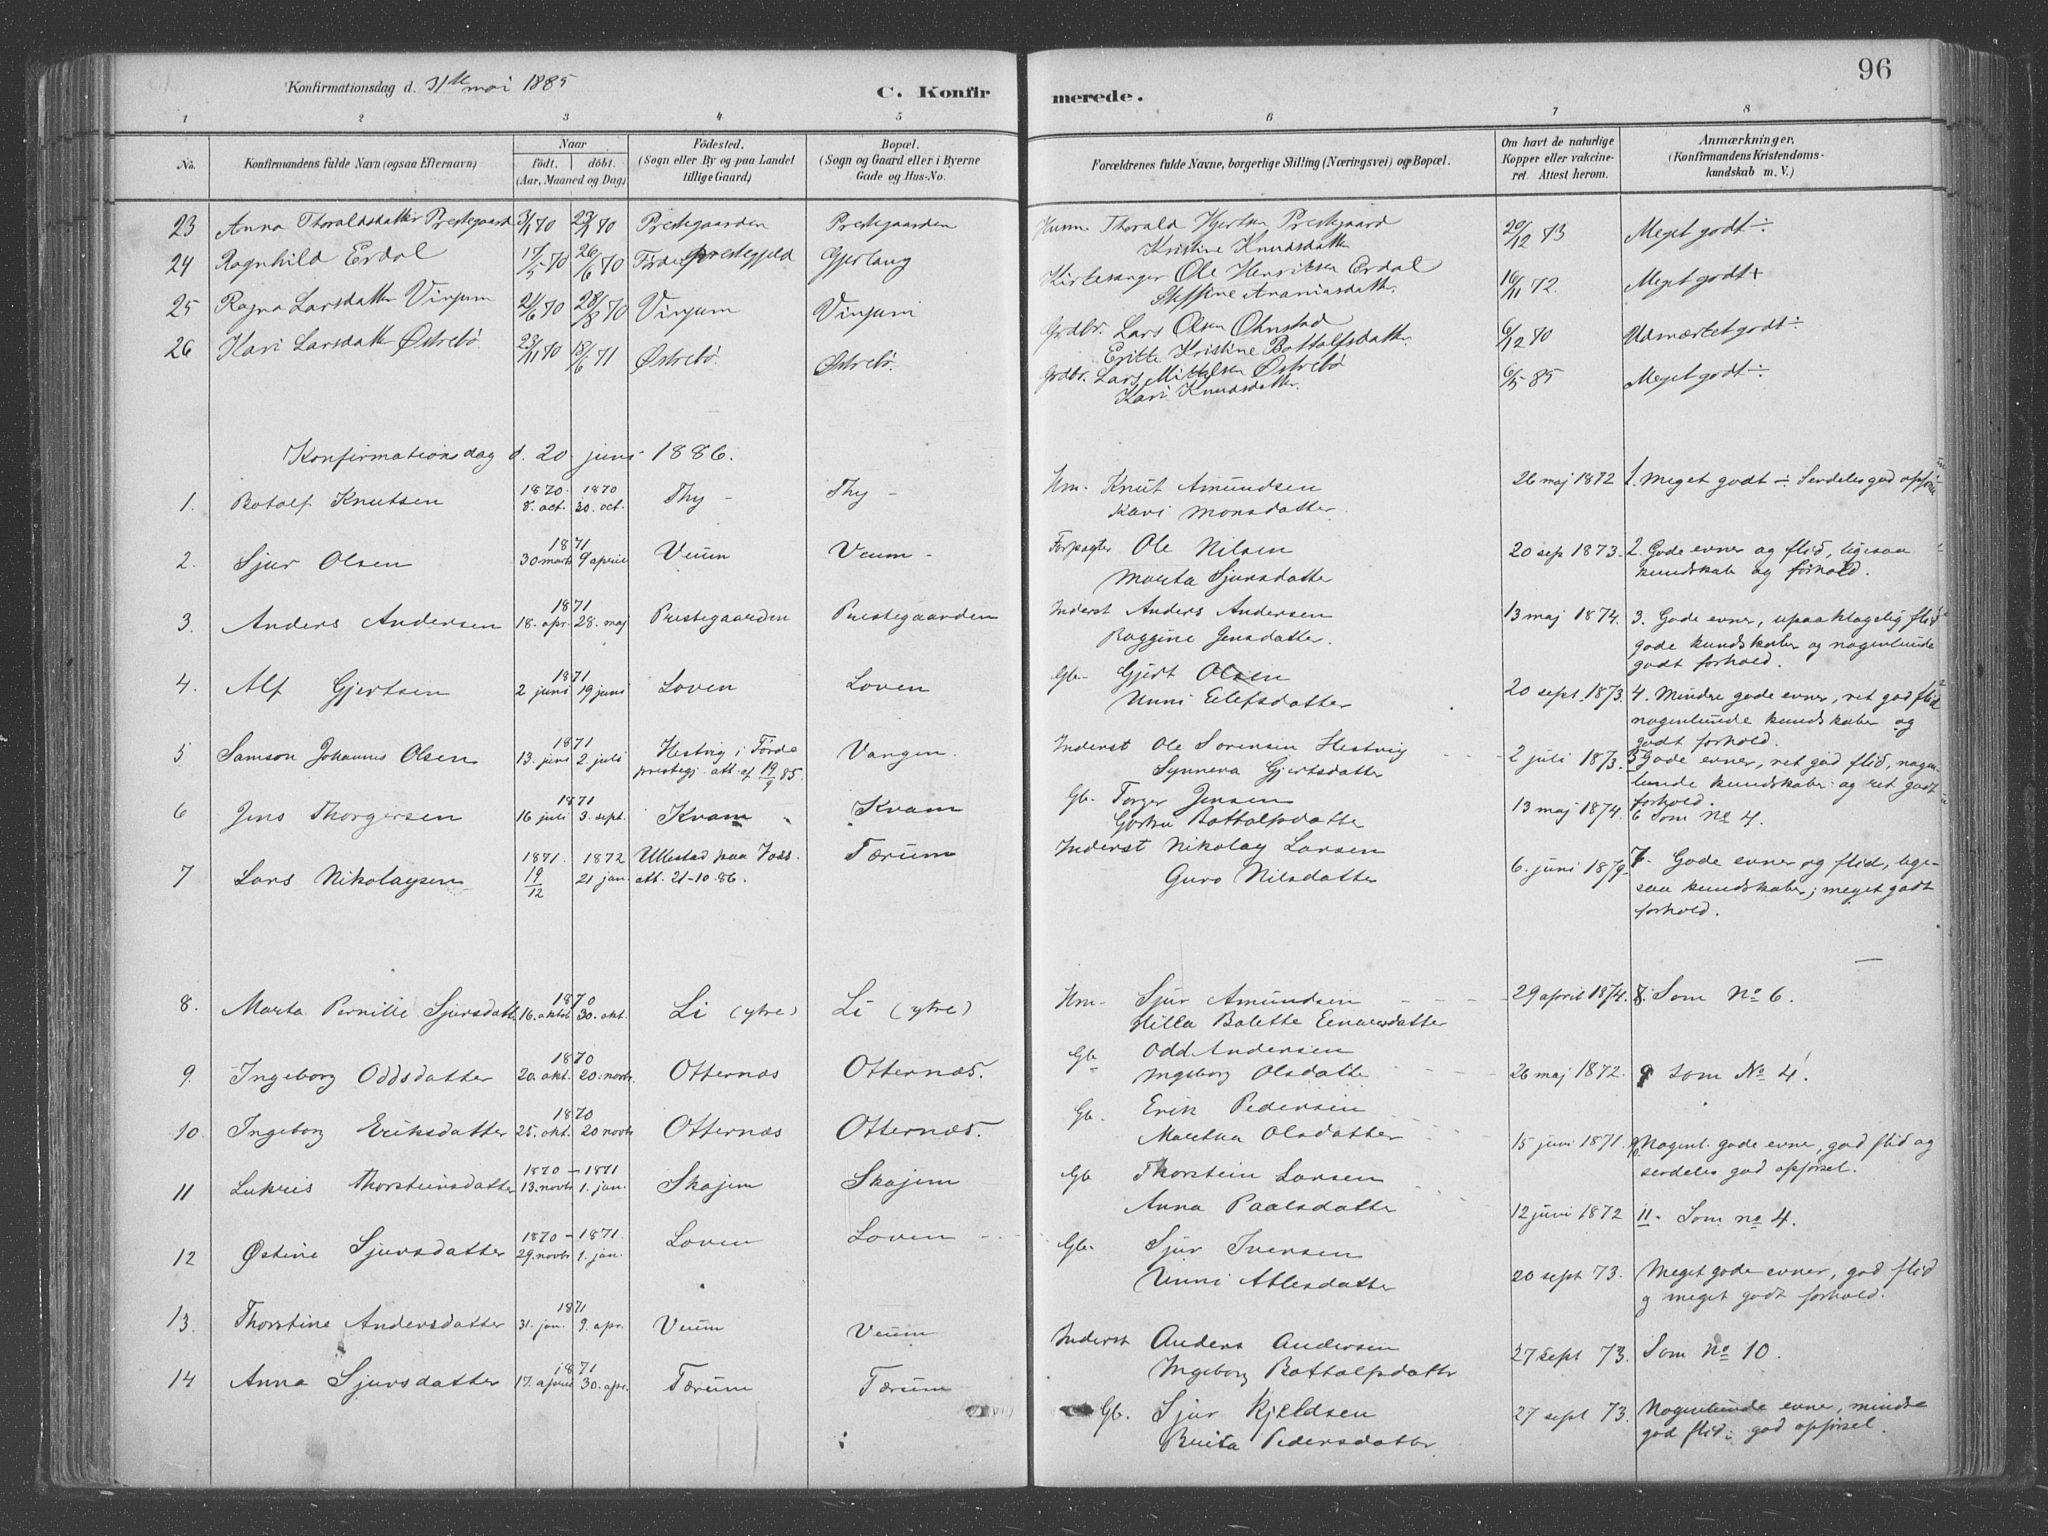 96
Konfirmationsdag d. 31te mai 1885
C. Konfirmerede.
1 2 3 4 5 6 7 8
No. Konfirmandens fulde Navn (ogsaa Efternavn) Naar født. døbt. (Aar, Maaned og Dag) Fødested. (Sogn eller By og paa Landet tillige Gaard) Bopæl. (Sogn og Gaard eller i Byerne Gade og Hus-No. Forældrenes fulde Navne, borgerlige Stilling (Næringsvei) og Bopæl. Om havt de naturlige Kopper eller vakcineret. Attest herom. Anmærkninger. (Konfirmandens Kristendomskundskab m. V.)
23 Anna Thoraldsdatter Prestegaard 3/1 70 23/1 70 Prestegaarden Prestegaarden Husm. Thorald Hjertsen Prestegaard 20/12 73 Meget godt ÷
Kristine Knudsdatter
24 Ragnhild Erdal 17/5 70 26/6 70 Førde prestegjeld Gjerlaug Kirkesanger Ole Henriksen Erdal 16/11 72. Meget godt +
Steffine Ananiasdatter.
25 Ragna Larsdatter Vinjum 21/6 70 28/8 70 Vinjum Vinjum Grdbr. Lars Olsen Ohnstad 6/12 70 Udmærket godt ÷
Eritte Kristine Bottolfsdatter
26 Kari Larsdatter Østrebø 23/11 70 18/6 71 Østrebø. Østrebø. Grdbr. Lars Mikkelsen Østrebø 6/5 85 Meget godt ÷
Kari Knudsdatter.
Konfirmationsdag d. 20 juni 1886.
1. Botolf Knutsen 1870 8. oct. 1870 30. oct. Thy - Thy - Hm. Knut Amundsen 26 maj 1872 1. Meget godt ÷ Serdeles god opførsel
Kari Monsdatter.
2. Sjur Olsen 1871 30 marts 9 april Veum Veum - Forpagter Ole Nilsen 20 sep 1873. 2. Gode evner og flid, ligesaa
Marta Sjursdatter kundskab og forhold.
3. Anders Andersen 1871 18. apr. 28. maj Prestegaarden Prestegaarden Inderst Anders Andersen 13 maj 1874. 3. Gode evner, upaaklagelig flid
Raggine Jensdatter. gode kundskaber og nogenlunde
godt forhold.
4. Alf Gjertsen 1871 2 juni 19 juni Loven Loven Gb. Gjert Olsen 20 sept 1873. 4. Mindre gode evner, ret god flid
Unni Eilefsdatter nogenlunde kundskaber og
godt forhold.
5. Samson Johannes Olsen 1871 13. juni 2 juli Hestvig i Førde prestegj. att. af 19/9 85. Vangen. Inderst Ole Sørensen Hestvig 2 juli 1873. 5 Gode evner, ret god flid, nogenlunde
Synneva Gjertsdatter kundskaber og ret godt
forhold.
6 Jens Thorgersen 1871 16 juli 3. sept. Kvam Kvam Gb. Torger Jensen 13 maj 1874. 6 Som No 4.
Gjertru Bottolfsdatter
7 Lars Nikolaysen 1871. 19/12 1872 21 jan. Ullestad paa Voss. att. 21-10.86. Tærum Inderst Nikolay Larsen 6. juni 1879. 7. Gode evner og flid, ligesaa
Guro Nilsdatter kundskaber; meget godt
forhold.
8. Marta Pernille Sjursdatt. 1870 16. oktob 30. okt. Li (ytre) Li (ytre) Hm. Sjur Amundsen 29 april 1874. 8. Som No 6.
Hilla Bolette Einarsdatter
9. Ingeborg Oddsdatter 1870 20. okt. 20. novb. Otternæs Otternæs. Gb. Odd Andersen 26 maj 1872. 9 Som No 4.
Ingeborg Olsdatte
10. Ingeborg Eriksdatter 1870 25. okt. 20 novb Otternæs Otternæs. Gb. Erik Pedersen 15 juni 1871. 10. Nogenl. gode evner, god flid og
Martha Olsdatter serdeles god opførsel.
11 Lukris Thorsteinsdatter 1870 - 1871 13. novb 1. jan. Skajem Skajem Gb Thorstein Larsen 12 juni 1872 11. Som no 4.
Anna Paalsdatter
12 Østine Sjursdatter 1870 - 1871. 29. novb 1. jan. Loven Loven Gb. Sjur Iversen 20 sept 73. Meget gode evner, god flid
Unni Atlesdatter og meget godt forhold.
13. Thorstine Andersdatter 1871 31. jan. 9. apr. Veum Veum Inderst Anders Andersen 27 sept 73. Som No 10.
Ingeborg Bottolfsdatter
14 Anna Sjursdatter 1871 17. april 30. apr. Tærum Tærum Gb. Sjur Kjeldsen 27 sept 73. Nogenlunde evner, mindre
Brita Pedersdatter god flid; god opførsel.